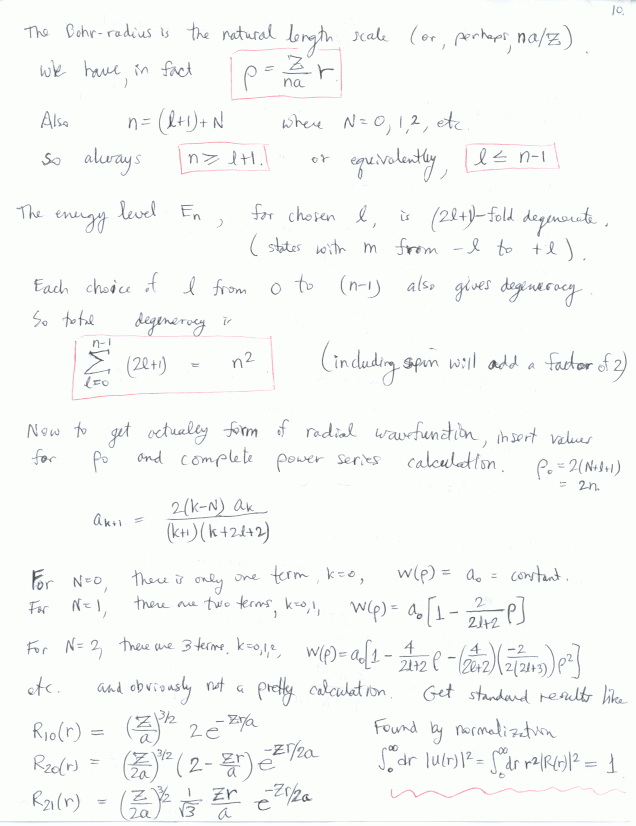 10.
The Bohr-radius is the natural length scale (or, perhaps, na/Z).
We have, in fact ρ = Z/na r
Also n = (l+1)+N where N = 0, 1, 2, etc.
So always n ≥ l+1. or equivalently, l ≤ n-1
The energy level En, for chosen l, is (2l+1)-fold degenerate.
(states with m from -l to +l).
Each choice of l from 0 to (n-1) also gives degeneracy.
So total degeneracy is
∑_{l=0}^{n-1} (2l+1) = n² (including spin will add a factor of 2)
Now to get actually form of radial wavefunction, insert values
for ρ₀ and complete power series calculation. ρ₀ = 2(N+l+1)
= 2n.
a_{k+1} = 2(k-N) a_k / (k+1)(k+2l+2)
For N=0, there is only one term, k=0, W(ρ) = a₀ = constant.
For N=1, there are two terms, k=0,1, W(ρ) = a₀[1 - 2/(2l+2) ρ]
For N=2, there are 3 terms, k=0,1,2, W(ρ) = a₀[1 - 4/(2l+2) ρ - (4/(2l+2))(-2/2(2l+3)) ρ²]
etc. and obviously not a pretty calculation. Get standard results like
R₁₀(r) = (Z/a)^{3/2} 2e^{-Zr/a} Found by normalization
R₂₀(r) = (Z/2a)^{3/2} (2 - Zr/a) e^{-Zr/2a} ∫₀^∞ dr |u(r)|² = ∫₀^∞ dr r²|R(r)|² = 1
R₂₁(r) = (Z/2a)^{3/2} 1/√3 Zr/a e^{-Zr/2a}